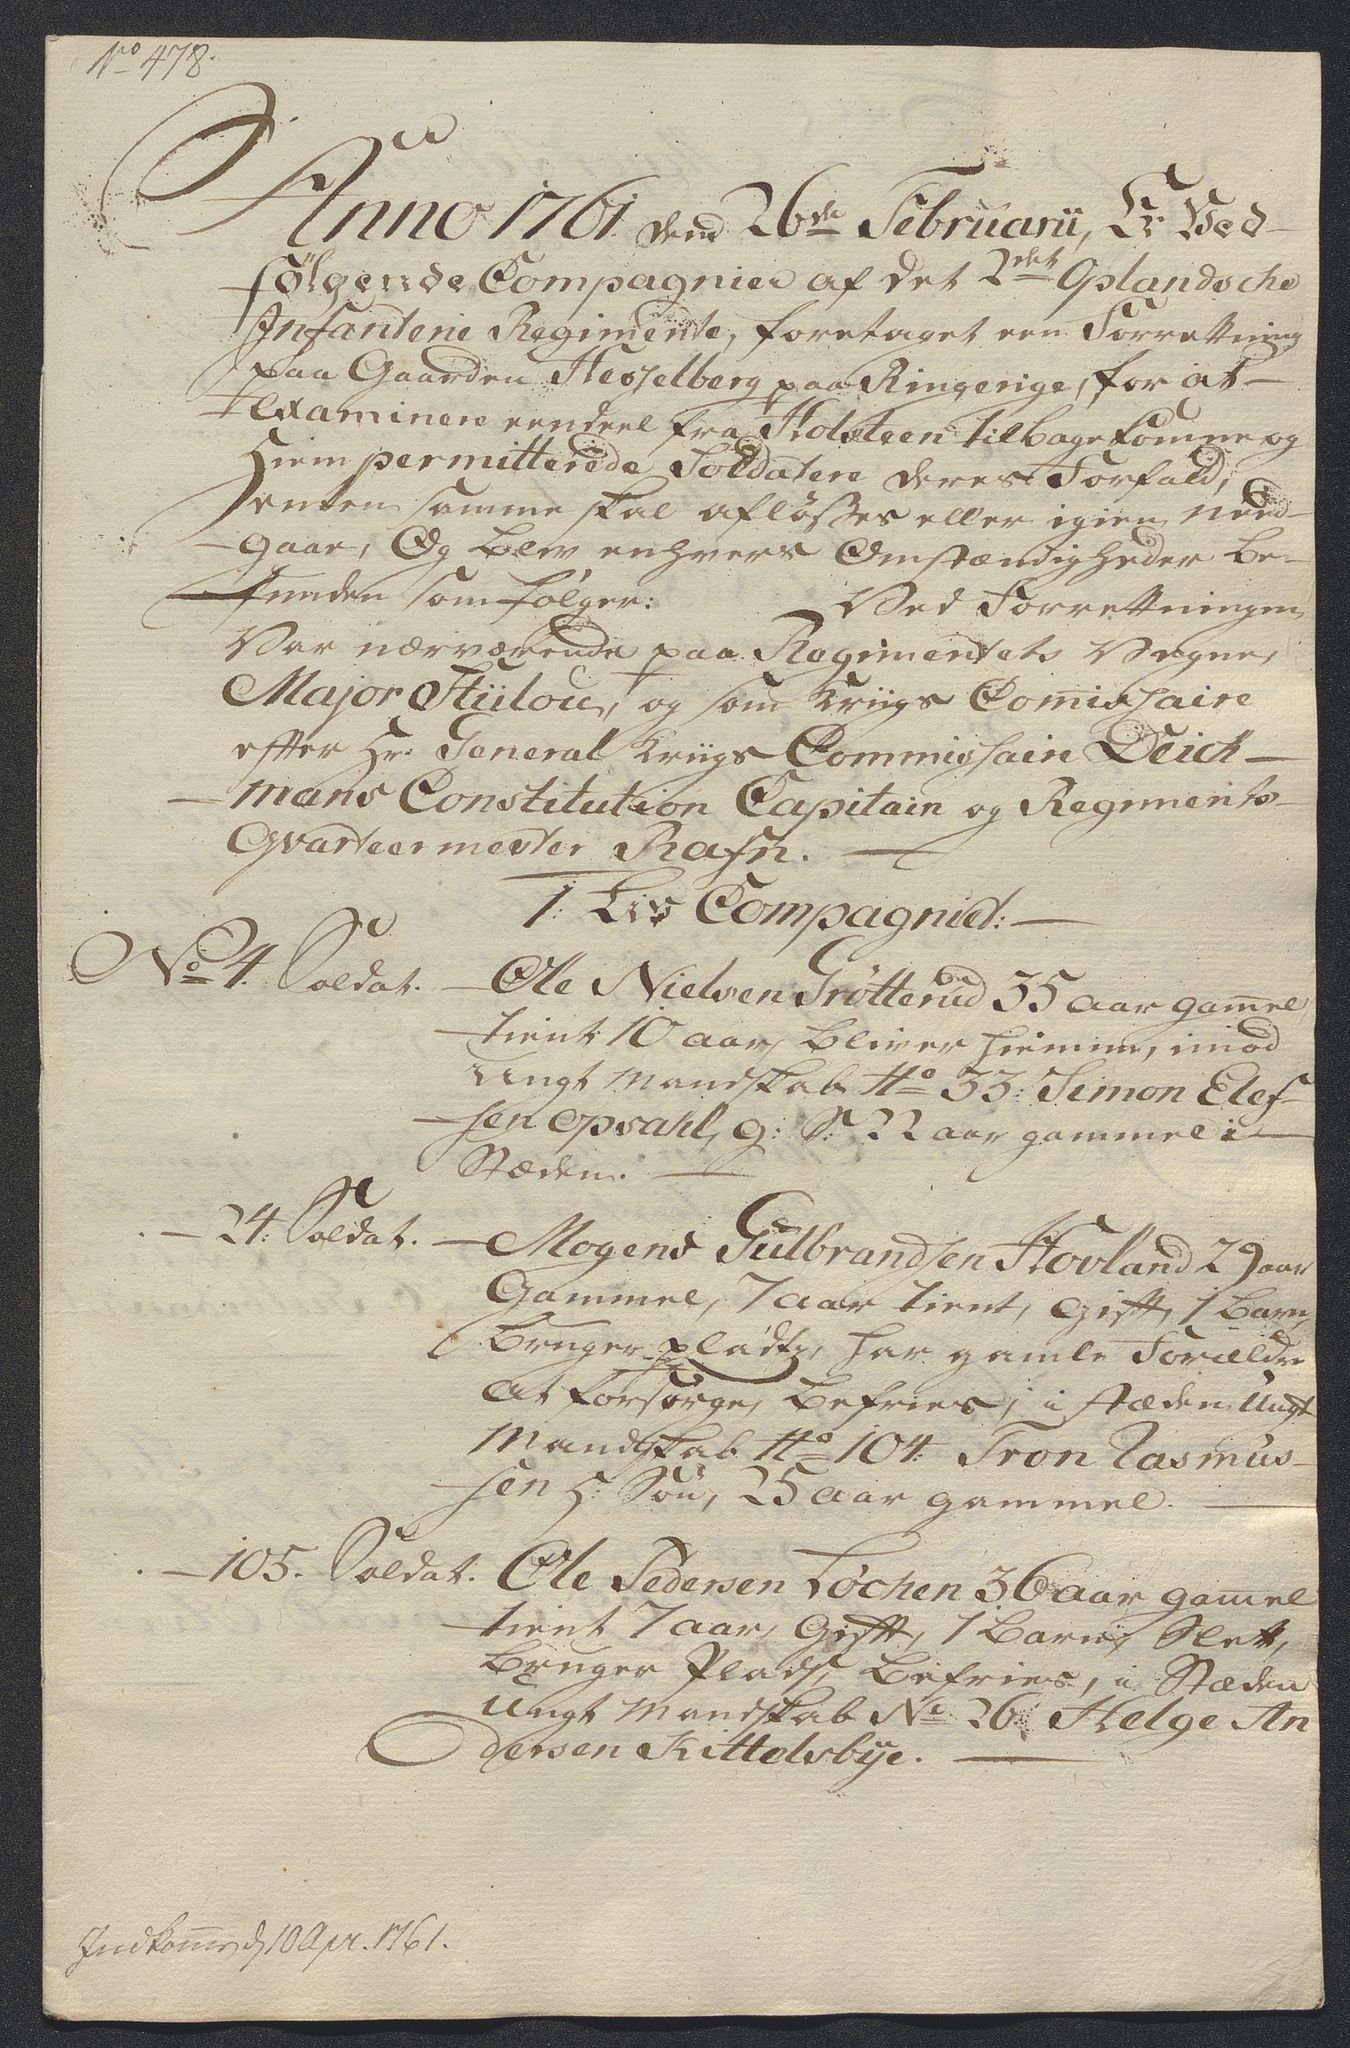 No 478.
Anno 1761 dend 26de Februarii, Er Ved-
følgende Compagnier af det 2det Oplandsche
Infanterie Regimente, foretaget een Forrettning
paa Gaarden Hesselberg paa Ringerige, for at
Examinere eendeel fra Holsteen tilbagekomne og
Hiempermitterede Soldatere deres Forfald,
enten samme skal afløsses eller igien need-
gaae, Og blev enhvers Omstændigheder be-
funden som følger: Ved Forrettningen
Var nærværende paa Regimentets Vegne,
Major Hülou, og som Kriigs Comissaire
efter Hr: General Kriigs Commissaire Deich-
mans Constitution Capitain og Regiments-
Qvarteermester Rafn.
1: Liv Compagniet:
No 4. Soldat. Ole Nielsen Grötterud 35 aar gamel
tient 10 aar, bliver hiemme, imod
Ungt Mandskab No 33: Simon Elef-
sen Opsahl, g: S: 22 aar gammel i
Stæden.
24: Soldat. Mogens Gulbrandsen Hovland 29 aar
Gammel, 7 aar tient, Gift, 1 Barn,
Bruger pladtz, har gamle Forældre
at forsørge, befries, i stæden Ungt
Mandskab No 104: Tron Rasmus-
sen H: Søn, 25 aar gammel.
105. Soldat. Ole Pedersen Løchen 36 aar gamel
tient 7 aar, Gift, 1 Barn, Slett,
Bruger Plads, befries, i Stæden
Ungt Mandskab No 26 Helge An
dersen Kittelsbye.
Indkomme d 10 Apr. 1761.